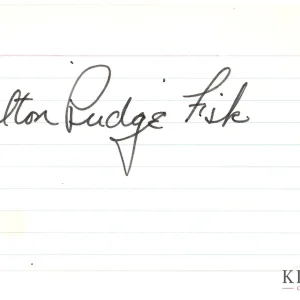 lton Rudge Fisk
KI